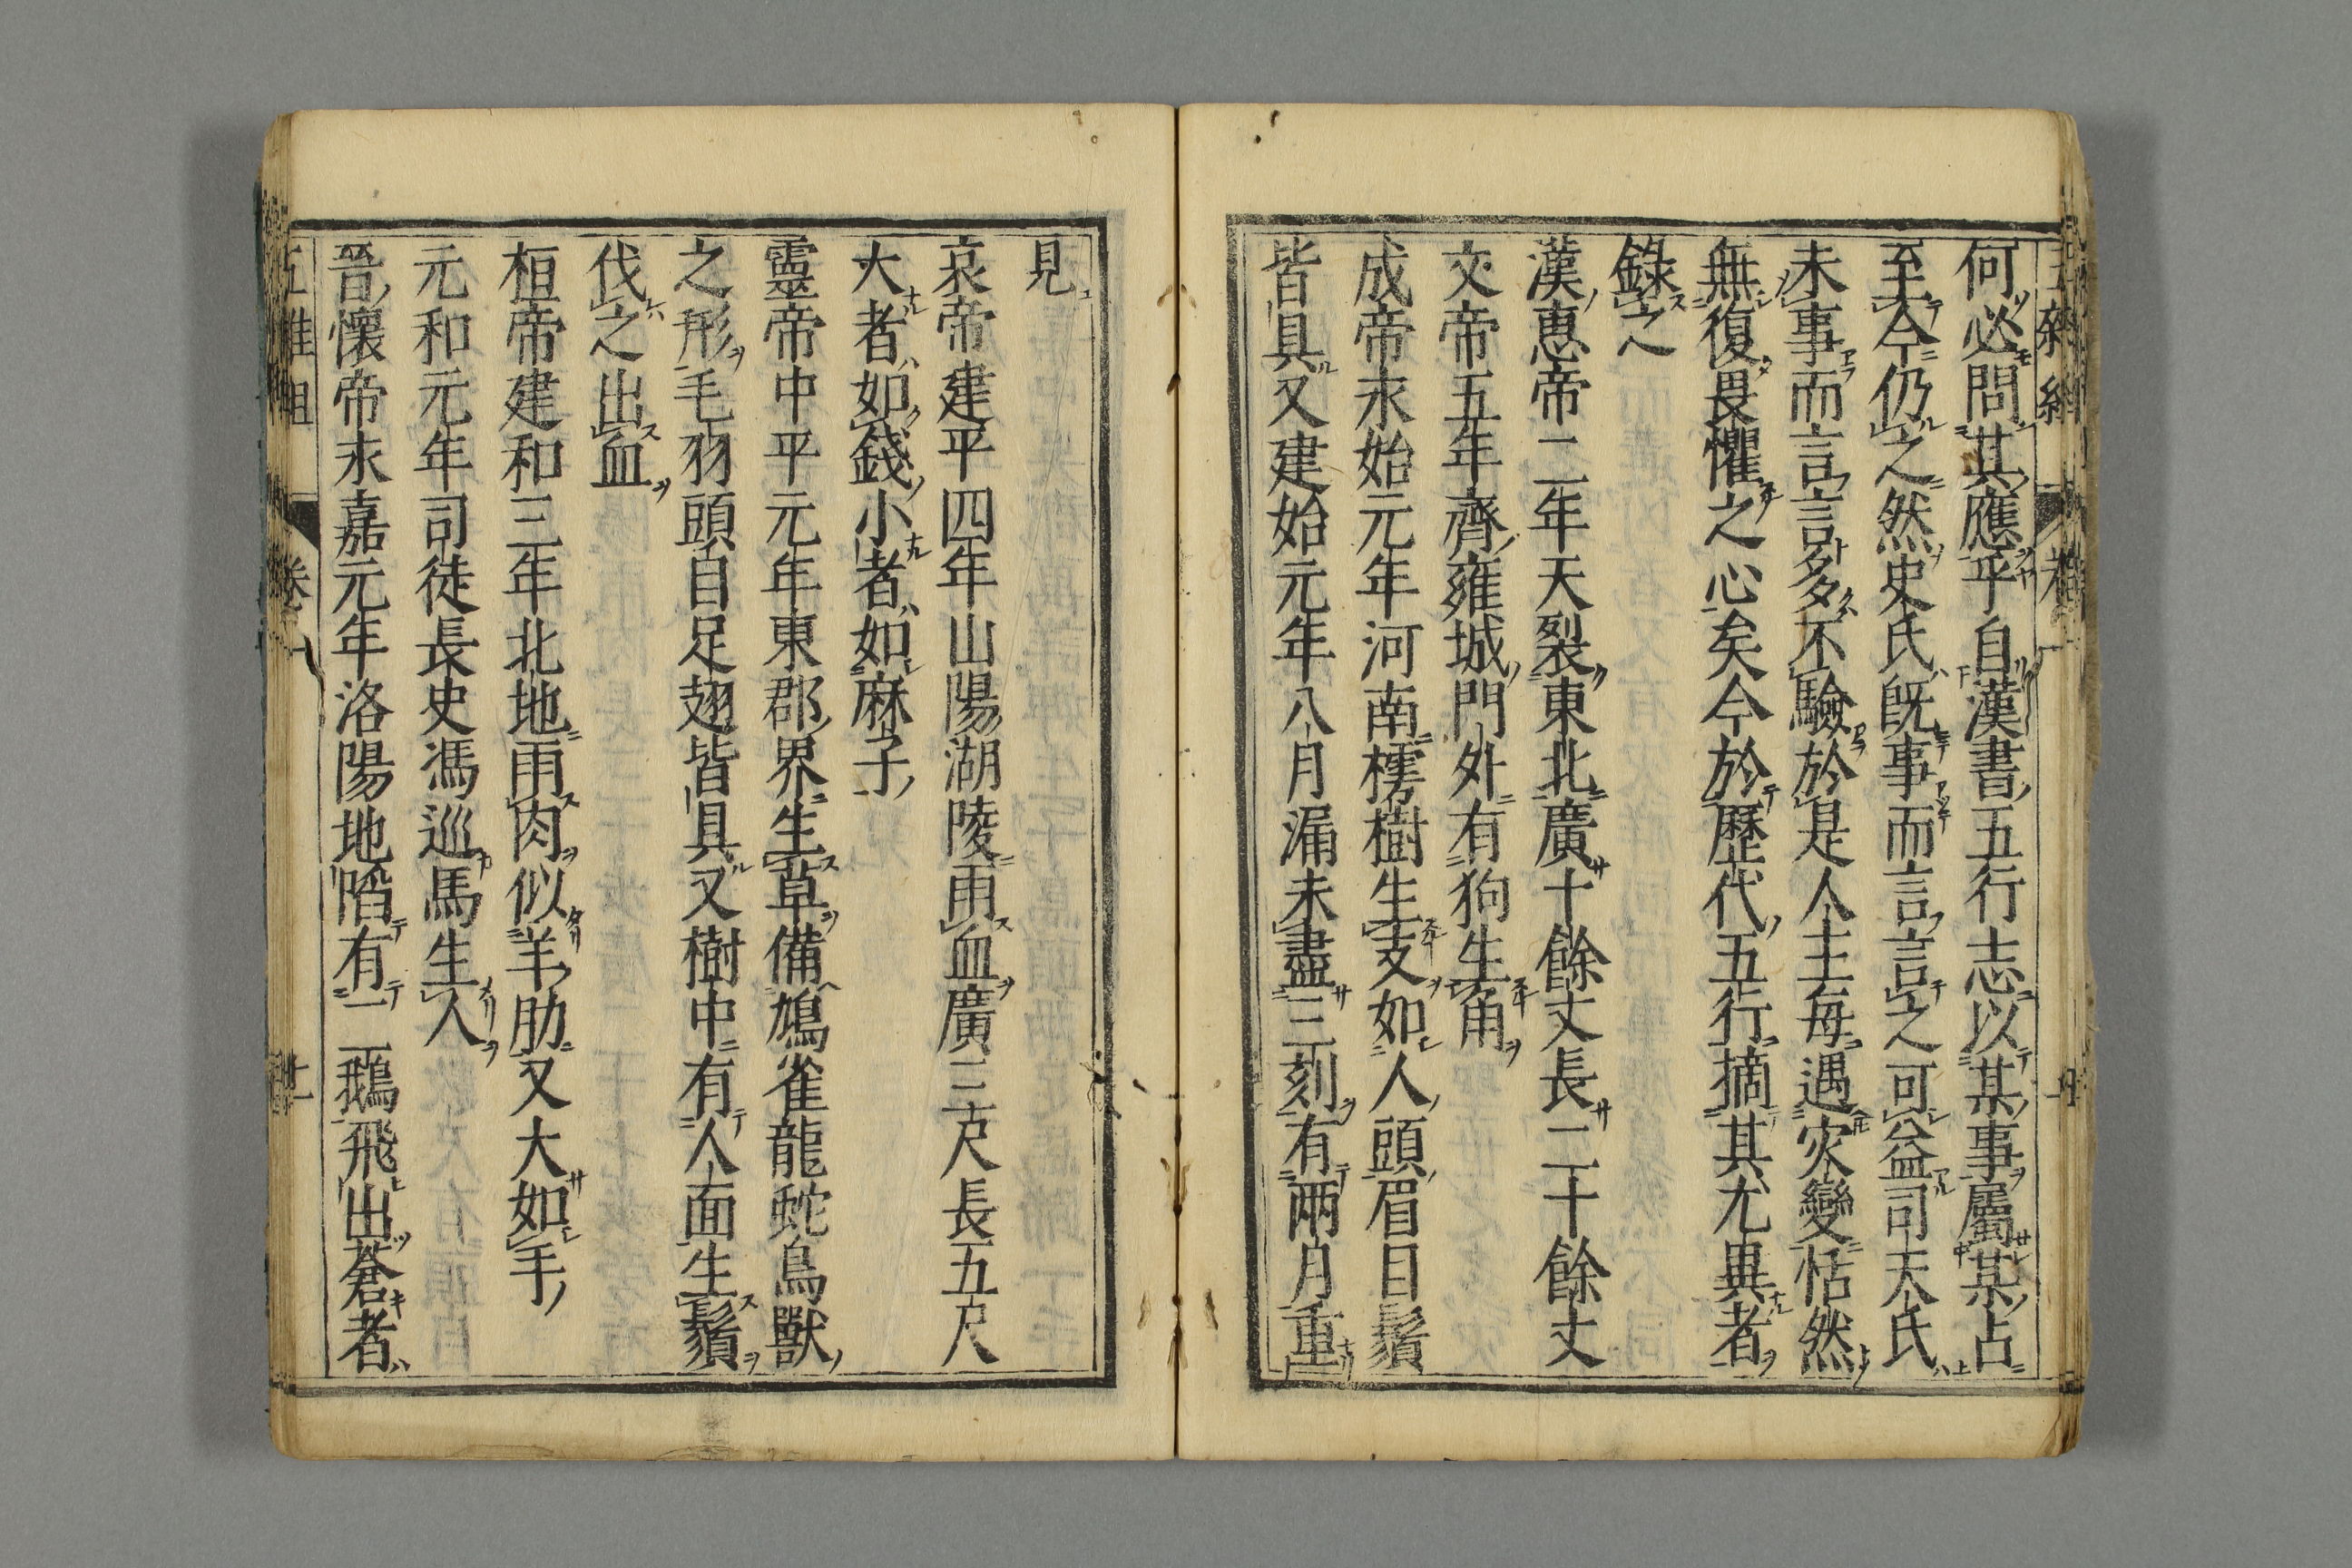 何必問其應乎自漢書五行志以某事屬某占
至今仍之然史氏既事而言言之可益司天氏
未事而言言多不驗於是人主每遇灾變恬然
無復畏懼之心矣今於歷代五行摘其尤異者
錄之
漢惠帝二年天裂東北廣十餘丈長二十餘丈
文帝五年齊雍城門外有狗生角
成帝永始元年河南樗樹生支如人頭眉目鬚
皆具又建始元年八月漏未盡三刻有兩月重
見
哀帝建平四年山陽湖陵雨血廣三尺長五尺
大者如錢小者如麻子
靈帝中平元年東郡界生草備鳩雀龍蛇鳥獸
之形毛羽頭目足翅皆具又樹中有人面生鬚
伐之出血
桓帝建和三年北地雨肉似羊肋又大如手
元和元年司徒長史馮巡馬生人
晉懷帝永嘉元年洛陽地陷有二鵝飛出蒼者
五雜組 卷一